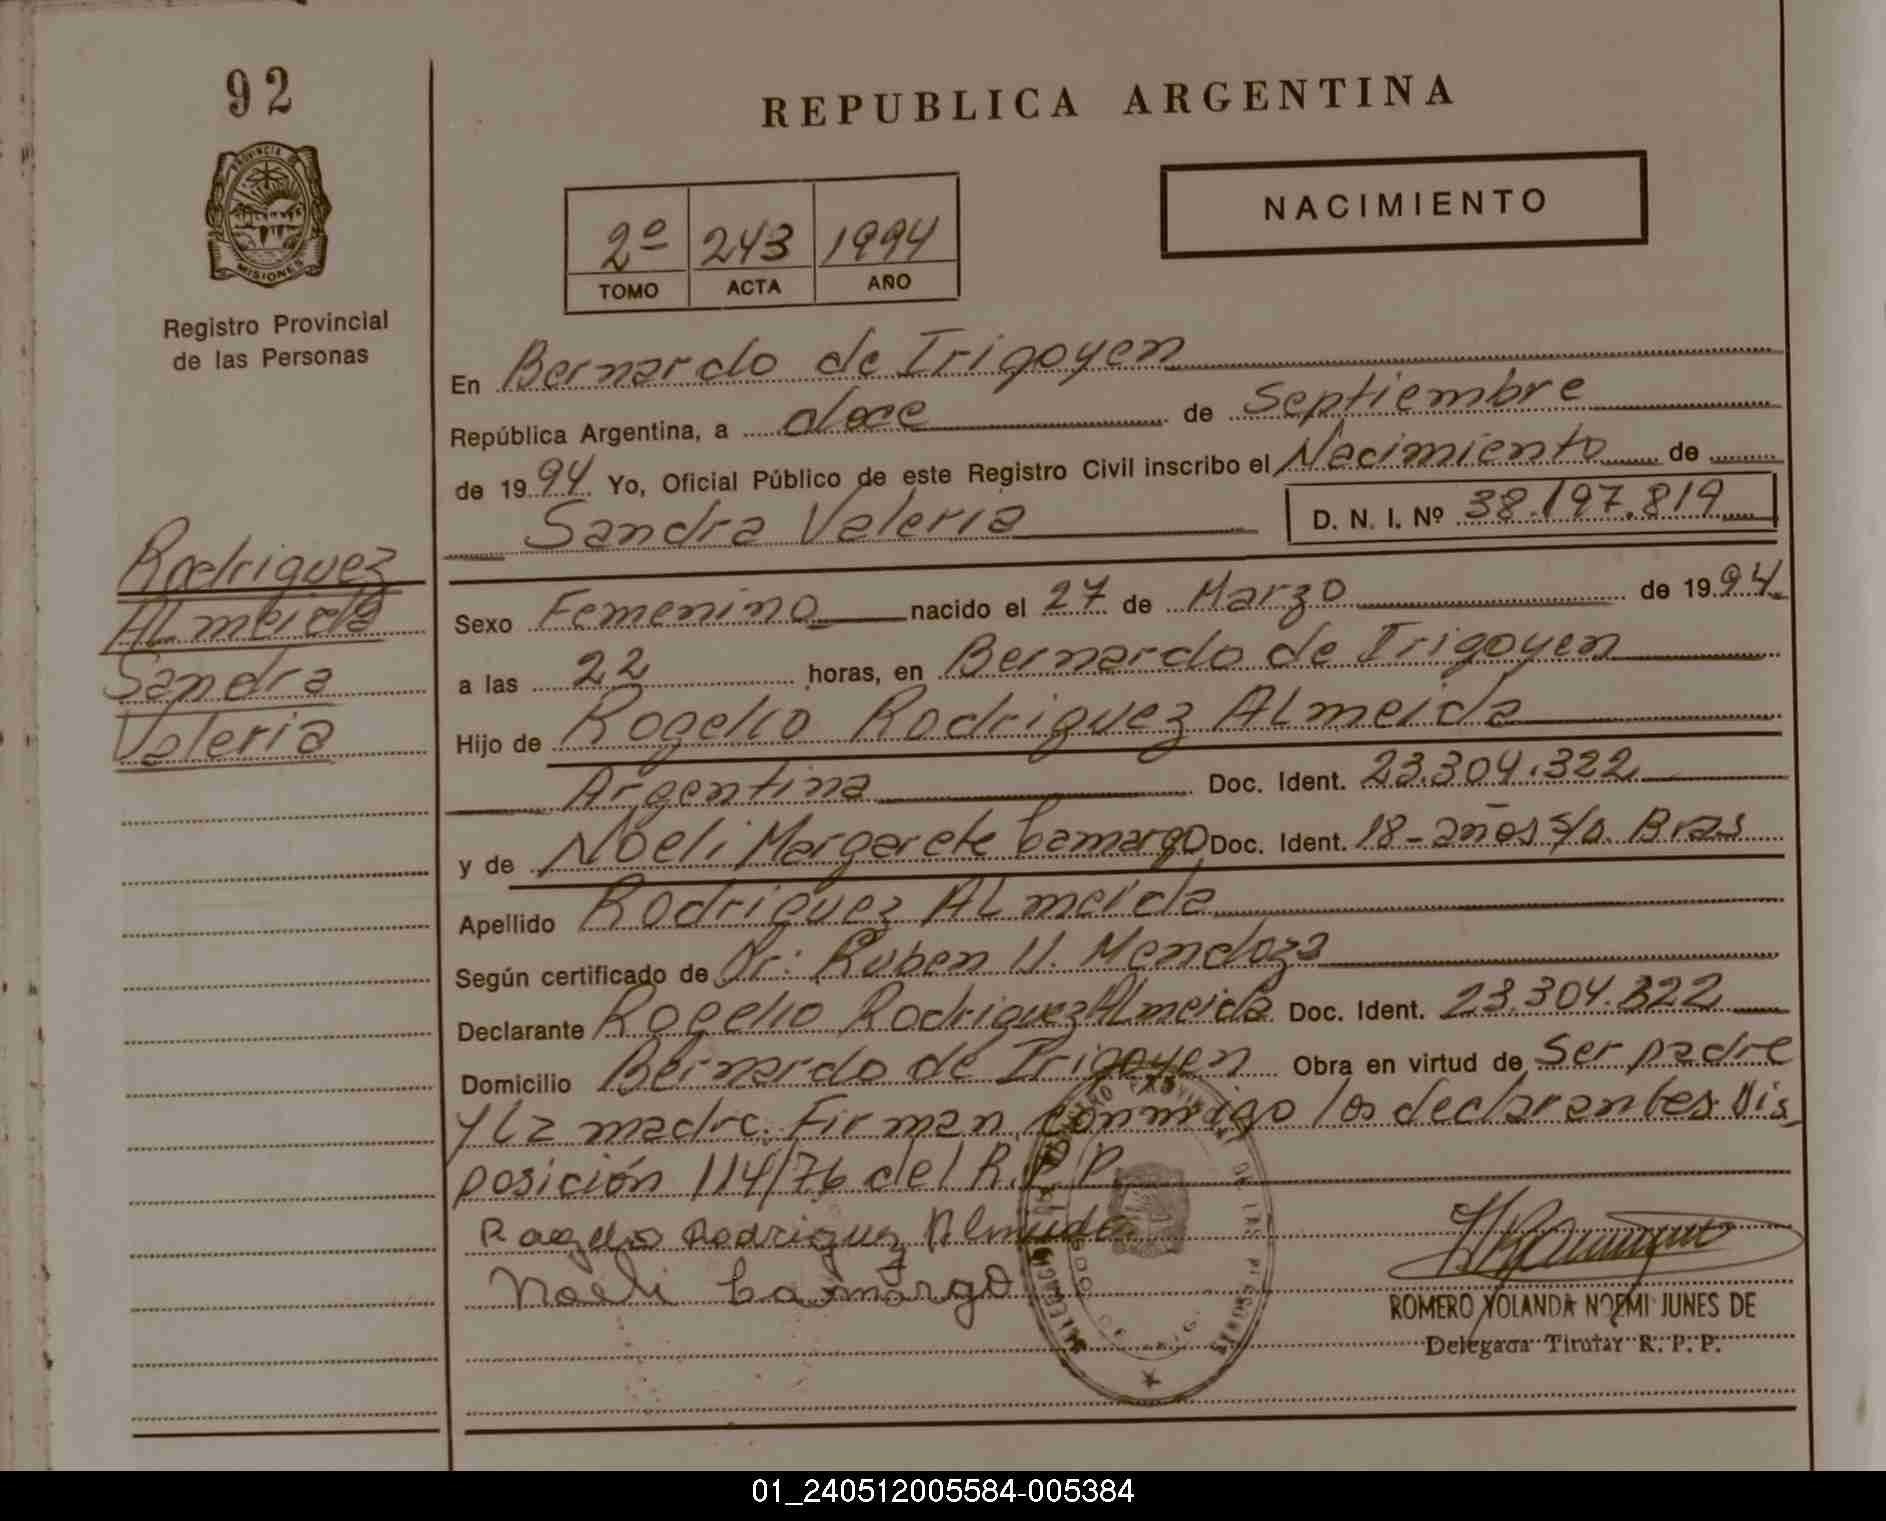 92
REPUBLICA ARGENTINA
PROVINCIA DE
MISIONES
NACIMIENTO
2º 243 1994
TOMO ACTA AÑO
Registro Provincial
de las Personas
En Bernardo de Irigoyen
República Argentina, a doce de Septiembre
de 1994 Yo, Oficial Público de este Registro Civil inscribo el Nacimiento de
Sandra Valeria D. N. I. Nº 38.197.819
Rodriguez
ALmeida
Sandra
Valeria
Sexo Femenino nacido el 27 de Marzo de 1994
a las 22 horas, en Bernardo de Irigoyen
Hijo de Rogelio Rodriguez ALmeida
Argentina Doc. Ident. 23.304.322
y de Noeli Margarete Camargo Doc. Ident. 18-años s/d. Bras
Apellido Rodriguez ALmeida
Según certificado de Dr: Ruben U. Mendoza
Declarante Rogelio Rodriguez ALmeida Doc. Ident. 23.304.322
Domicilio Bernardo de Irigoyen Obra en virtud de Ser padre
y La madre. Firman conmigo los declarantes. Dis-
posición 114/76 del R.P.P.
Rogelio Rodriguez Almeida
Noeli Camargo
ROMERO YOLANDA NOEMI JUNES DE
Delegada Titular R. P. P.
01_240512005584-005384